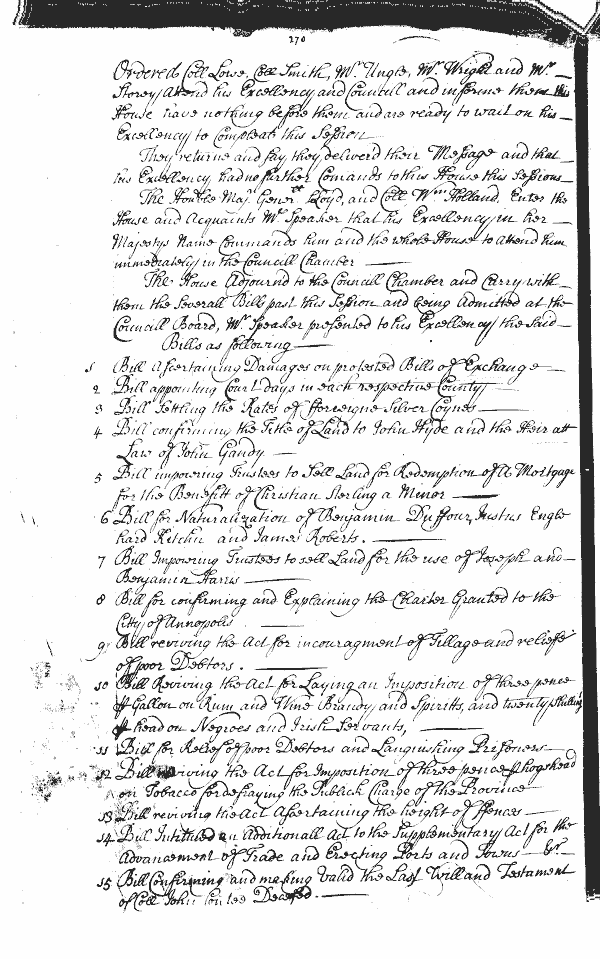 270
Ordered Coll Lowe, Coll Smith, Mr. Ungle, Mr. Wright and Mr.
Storey Attend his Excellency and Councill and informe them this
House have nothing before them and are ready to wait on his
Excellency to Compleat this Session
They returne and say they deliverd their Message and that
his Excellency had no further Comands to this House this Sessions
The Honble Maj. Generll Lloyd, and Coll Wm Holland. Enter the
House and Acquaints Mr Speaker that his Excellency in her
Majestys Name Commands him and the whole House to attend him
immediately in the Councill Chamber
The House Adjourn'd to the Councill Chamber and Carry with
them the Severall Bills past this Session and being Admitted at the
Councill Board, Mr Speaker presented to his Excellency the said
Bills as following
1 Bill Ascertaining Damages on protested Bills of Exchange
2 Bill appointing Court days in each respective County
3 Bill Settling the Rates of fforreigne Silver Coynes
4 Bill confirming the Title of Land to John Hyde and the Heir att
Law of John Gandy
5 Bill impowring Trustees to Sell Land for Redemption of A Mortgage
for the Benefitt of Christian Sterling a Minor
6 Bill for Naturalization of Benjamin Duffour, Justus Engle
hard Kitchin and James Roberts.
7 Bill Impowring Trustees to sell Land for the use of Joseph and
Benjamin Harris
8 Bill for confirming and Explaining the Charter Granted to the
City of Annopolis
9 Bill reviving the Act for incouragment of Tillage and reliefe
of poor Debtors.
10 Bill Reviving the Act for Laying an Imposition of three pence
p Gallon on Rum and Wine Brandy and Spiritts, and twenty shilling
p head on Negroes and Irish Servants,
11 Bill for Relief of poor Debtors and Languishing Prisoners
12 Bill reviving the Act for Imposition of three pence p hogshead
on Tobacco for defraying the Publick Charge of the Province
13 Bill reviving the Act Ascertaining the height of ffences
14 Bill Intituled an Additionall Act to the Supplementary Act for the
Advancement of Trade and Erecting Ports and Towns &c.
15 Bill Confirming and making Valid the Last Will and Testament
of Coll John Contee Deceased.